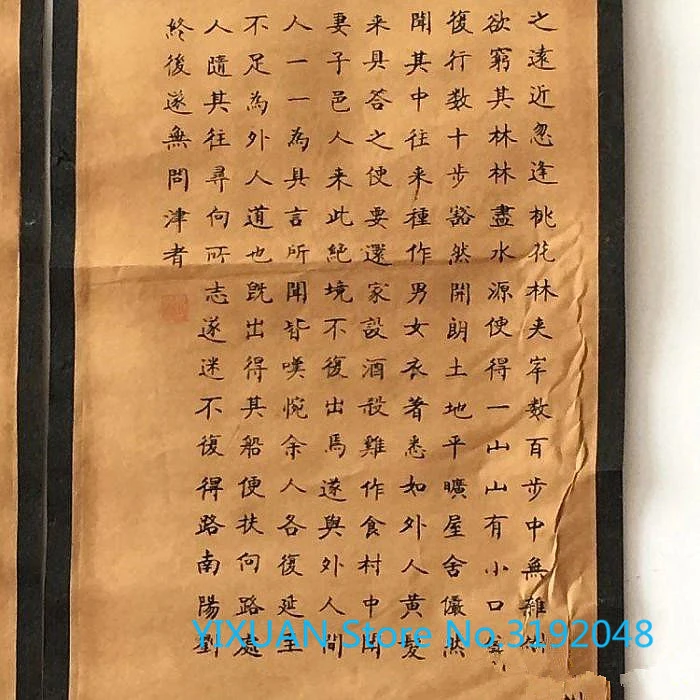 之遠近忽逢桃花林夹岸数百步中無雜
欲窮其林林盡水源便得一山山有小口
復行数十步豁然開朗土地平曠屋舍儼然
聞其中往来種作男女衣著悉如外人黄髮
来具答之便要還家設酒殺雞作食村中聞
妻子邑人来此絕境不復出焉遂與外人間
人一一為具言所聞皆嘆惋余人各復延至
不足為外人道也既出得其船便扶向路處
人隨其往尋向所志遂迷不復得路南陽劉
終後遂無問津者
YIXUAN Store No.3192048